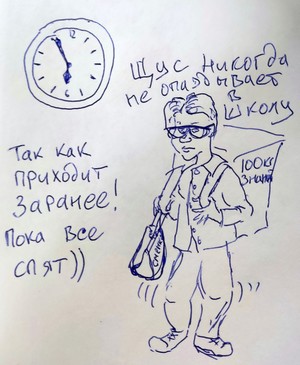 12
6
Щус никогда
не опаздывает
в
школу
Так как
приходит
заранее!
Пока все
спят))
100кг
знаний